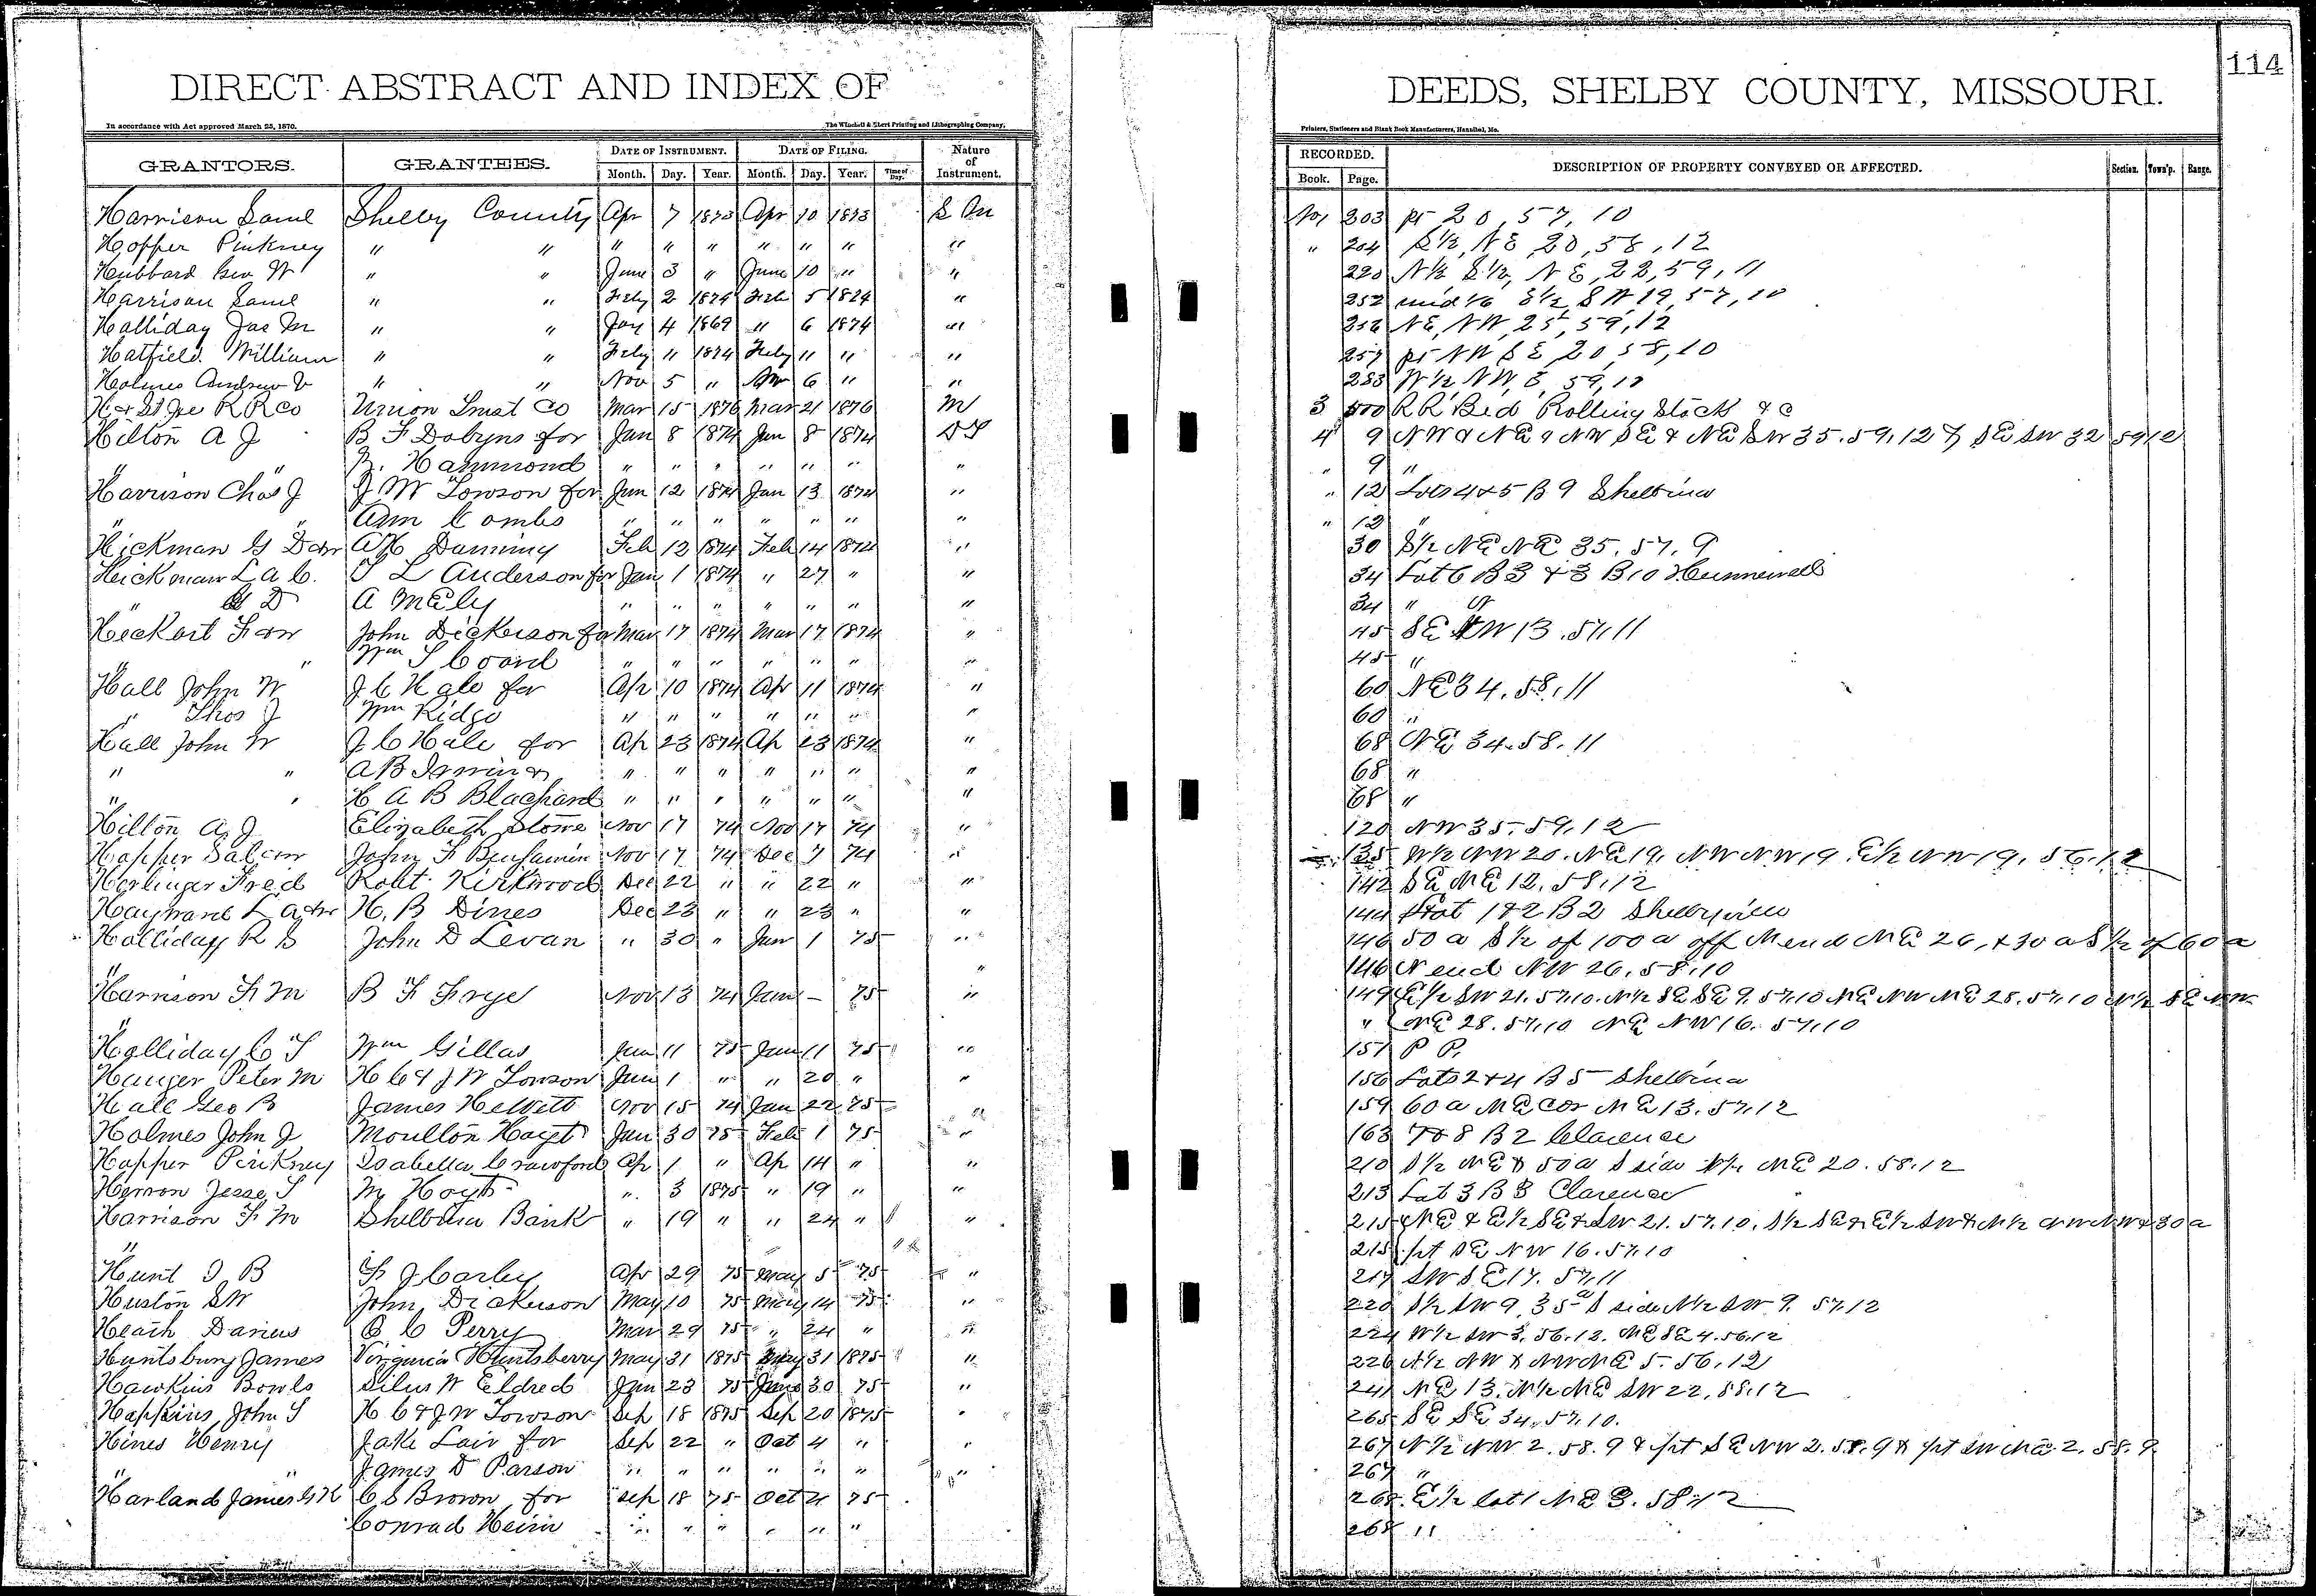 114
DIRECT ABSTRACT AND INDEX OF DEEDS, SHELBY COUNTY, MISSOURI.
In accordance with Act approved March 25, 1870. The Winchell & Ebert Printing and Lithographing Company, Printers, Stationers and Blank Book Manufacturers, Hannibal, Mo.
GRANTORS. GRANTEES. DATE OF INSTRUMENT. DATE OF FILING. Nature of Instrument. RECORDED. DESCRIPTION OF PROPERTY CONVEYED OR AFFECTED. Section. Town'p. Range.
Month. Day. Year. Month. Day. Year. Time of Day. Book. Page.
Harrison Saml Shelby County Apr 7 1873 Apr 10 1873 S M 203 pt 20, 57, 10
Hopper Pinkney " " " " " " " " " " 204 S½, NE, 20, 58, 12
Hubbard Geo W " " June 3 " June 10 " " 220 N½ S½, NE, 22, 59, 11
Harrison Saml " " Feby 2 1874 Feb 5 1874 " 252 mid S½ SW 19, 57, 10
Halliday Jas M " " Jany 4 1869 " 6 1874 " NE, NW, 25, 59, 12
Hatfield William " " Feby 11 1874 Feby 11 " " 257 pt NW SE 20, 58, 10
Holmes Andrew " " Nov 5 " 6 " " 283 W½, NW, 59,
H & St Joe R R Co Union Trust Co Mar 15 1876 Mar 21 1876 M 3 R R Bed Rolling Stock & C
Hilton A J B F Dobyns for Jan 8 1874 Jan 8 1874 DT 4 9 NW & NE & NW SE & NE SW 35. 59. 12 & SE SW 32 59 12
" " Hammond " " " " " " " " 9 "
Harrison Chas J J W Towson for Jan 12 1874 Jan 13 1874 " " 12 Lots 4 & 5 B 9 Shelbina
" " Ann Combs " " " " " " " " 12 "
Hickman G D Feb 12 1874 Feb 14 1874 " 30 S½ NE NE 35. 57. 9
Hickman L A C. T L Anderson for Jan 1 1874 " 27 " " 34 Lot 6 B 3 & 3 B 10 Hunnewell
" G D A M Ely " " " " " " " 34 "
Heckart F John Dickerson for Mar 17 1874 Mar 17 1874 " 45 SE 13. 57. 11
" " Wm S " " " " " " " 45 "
Hall John W J C Hale for Apr 10 1874 Apr 11 1874 " 60 NE 34. 58. 11
" Thos J Wm Ridge " " " " " " " 60 "
Hall John W J C Hale for Ap 23 1874 Ap 23 1874 " 68 NE 34. 58. 11
" " A B " " " " " " " 68 "
" " H A B Blachard " " " " " " " 68 "
Hilton A. J Elizabeth Stowe Nov 17 74 Nov 17 74 " 120 NW 35. 59. 12
Hopper John F Benjamin Nov 17 74 Dec 7 74 " 135 W½ NW 20. NE 19. NW NW 19. E½ NW 19. 56. 12
Herlinger Fred Robt Kirkwood Dec 22 " " 22 " " 142 SE NE 12. 58. 12
Hayward L H. B Dines Dec 23 " " 23 " " 144 Lot 1 & 2 B 2 Shelbyville
Halliday R S John D Levan " 30 " Jan 1 75 " 146 50 a S½ of 100 a off N end NE 26, & 30 a S½ of 60 a
" " 146 N end NW 26. 58. 10
Harrison F M B F Frye Nov 13 74 Jan — 75 " 149 E½ SW 21. 57. 10. N½ SE SE 9. 57. 10 NE NW NE 28. 57. 10 N½ SE NW
" " NE 28. 57. 10 NE NW 16. 57. 10
Halliday C T Wm Gillas Jan 11 75 Jan 11 75 " 151 P P.
Hauger Peter M H C & J W Towson Jan 1 " " 20 " " 156 Lots 2 & 4 B 5 Shelbina
Hall Geo B James Hewitt Nov 15 74 Jan 22 75 " 159 60 a NE cor NE 13. 57. 12
Holmes John J Moulton Hoyt Jan 30 75 Feb 1 75 " 163 7 & 8 B 2 Clarence
Hopper Pinkney Isabella Crawford Ap 1 " Ap 14 " " 210 S½ NE & 50 a S side N½ NE 20. 58. 12
Herron Jesse T M Hoyt " 3 1875 " 19 " " 213 Lot 3 B 3 Clarence
Harrison F M Shelbina Bank " 19 " " 24 " " 215 NE & E½ SE & SW 21. 57. 10. S½ SE & E½ SW & N½ NW NW & 30 a
" " 215 pt SE NW 16. 57. 10
Hunt I B Apr 29 75 May 5 75 " 217 SW SE 17. 57. 11
Huston S W John Dickerson May 10 75 May 14 75 " 220 S½ SW 9, 35 a S side N½ SW 9. 57. 12
Heath Darius C C Perry Mar 29 75 " 24 " " 224 W½ SW 3. 56. 12. NE SE 4. 56. 12
Huntsbury James Virginia Huntsberry May 31 1875 May 31 1875 " 226 N½ NW & NW NE 5. 56. 12
Hawkins Bowls Silus W Eldred Jan 23 75 June 30 75 " 241 NE 13. N½ NE SW 22. 58. 12
Hopkins, John S H C & J W Towson Sep 18 1875 Sep 20 1875 " 265 SE SE 34. 57. 10.
Hines Henry Jake Lair for Sep 22 " Oct 4 " " 267 N½ NW 2. 58. 9 & pt SE NW 2. 58. 9 & pt SW NE 2. 58. 9
" " James D Parson " " " " " " " 267 "
Harland James C S Brown for Sep 18 75 Oct 4 75 268 E½ lot 1 NE 3. 58. 12
Conrad Heim " " " " " " 268 "